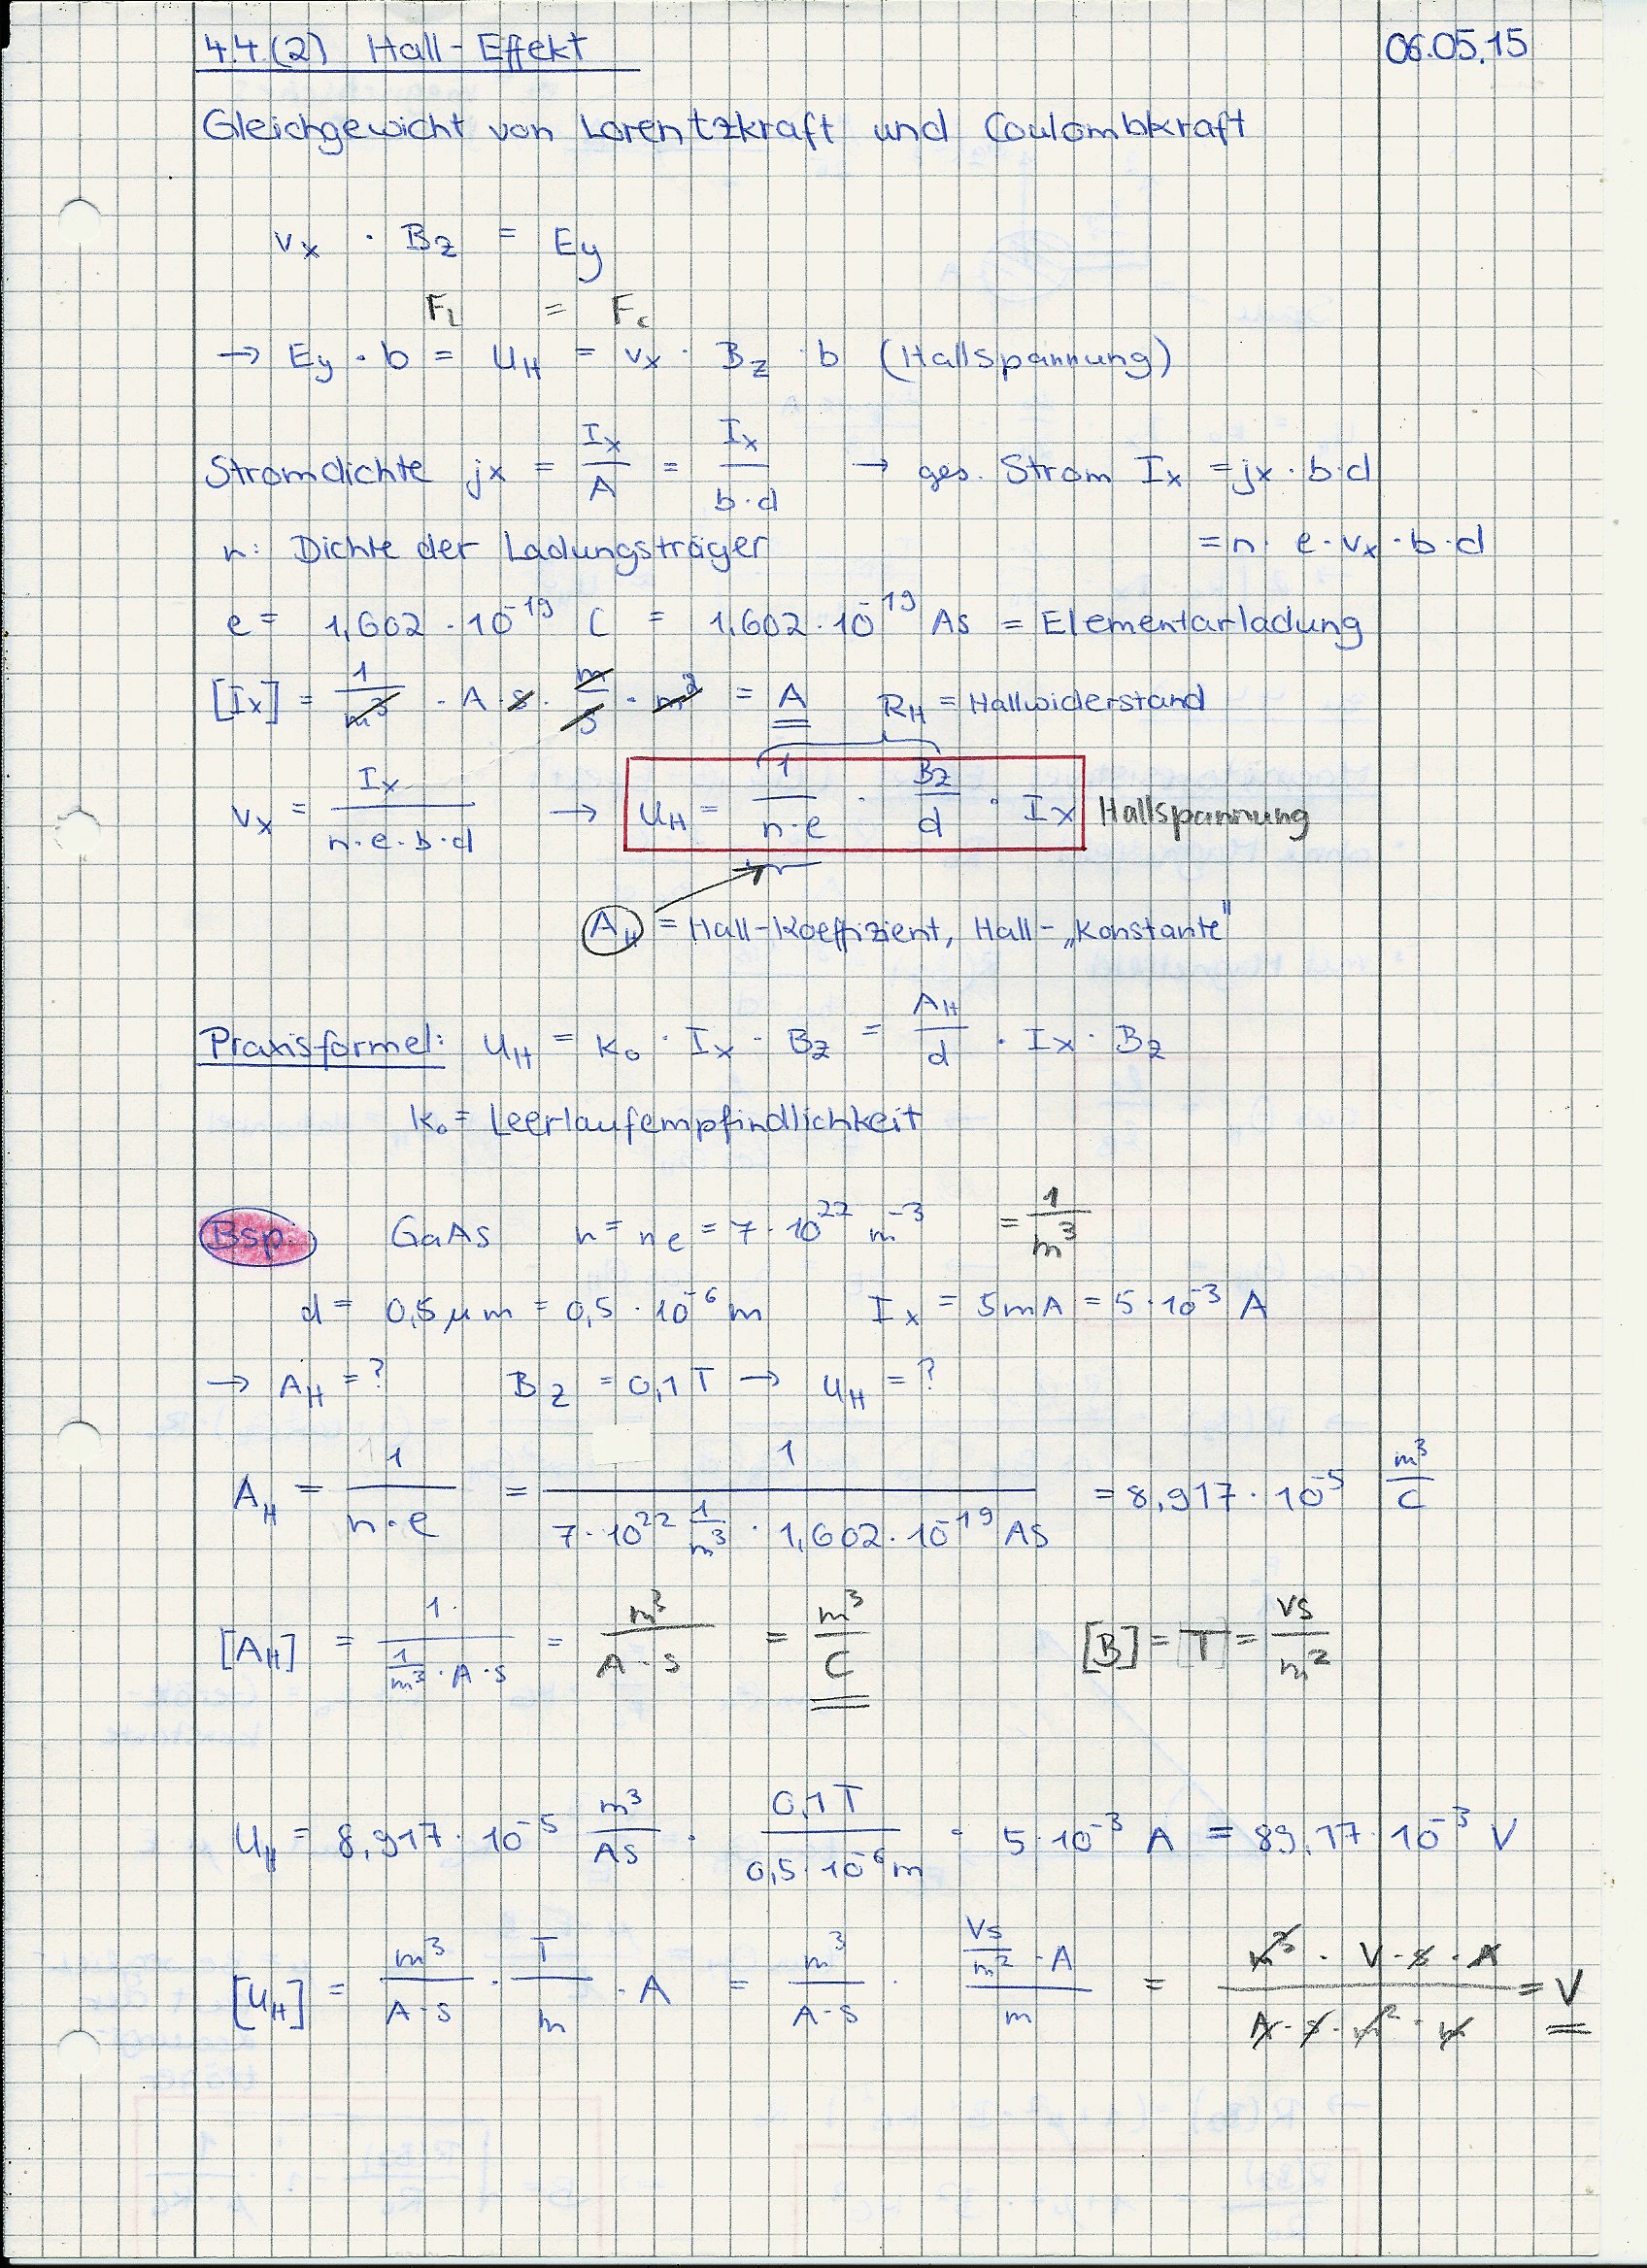 4.4.(2) Hall-Effekt 06.05.15
Gleichgewicht von Lorentzkraft und Coulombkraft
vₓ · B_z = E_y
F_L = F_c
→ E_y · b = U_H = vₓ · B_z · b (Hallspannung)
Stromdichte jx = Iₓ/A = Iₓ/(b·d) → ges. Strom Iₓ = jx · b·d
n: Dichte der Ladungsträger = n · e · vₓ · b · d
e = 1,602 · 10⁻¹⁹ C = 1,602 · 10⁻¹⁹ As = Elementarladung
[Iₓ] = 1/m³ · A · s · m/s · m² = A R_H = Hallwiderstand
vₓ = Iₓ/(n·e·b·d) → U_H = 1/(n·e) · B_z/d · Iₓ Hallspannung
A_H = Hall-Koeffizient, Hall-„Konstante"
Praxisformel: U_H = k₀ · Iₓ · B_z = A_H/d · Iₓ · B_z
k₀ = Leerlaufempfindlichkeit
Bsp. GaAs n = n_e = 7 · 10²² m⁻³ = 1/m³
d = 0,5 µm = 0,5 · 10⁻⁶ m Iₓ = 5mA = 5·10⁻³ A
→ A_H = ? B_z = 0,1 T → U_H = ?
A_H = 1/(n·e) = 1/(7·10²² 1/m³ · 1,602·10⁻¹⁹ As) = 8,917·10⁻⁵ m³/C
[A_H] = 1/(1/m³ · A·s) = m³/(A·s) = m³/C [B] = [T] = Vs/m²
U_H = 8,917·10⁻⁵ m³/As · 0,1T/(0,5·10⁻⁶m) · 5·10⁻³ A = 89,17·10⁻³ V
[U_H] = m³/(A·s) · T/m · A = m³/(A·s) · (Vs/m² · A)/m = (m³ · V·s·A)/(A·s·m²·m) = V